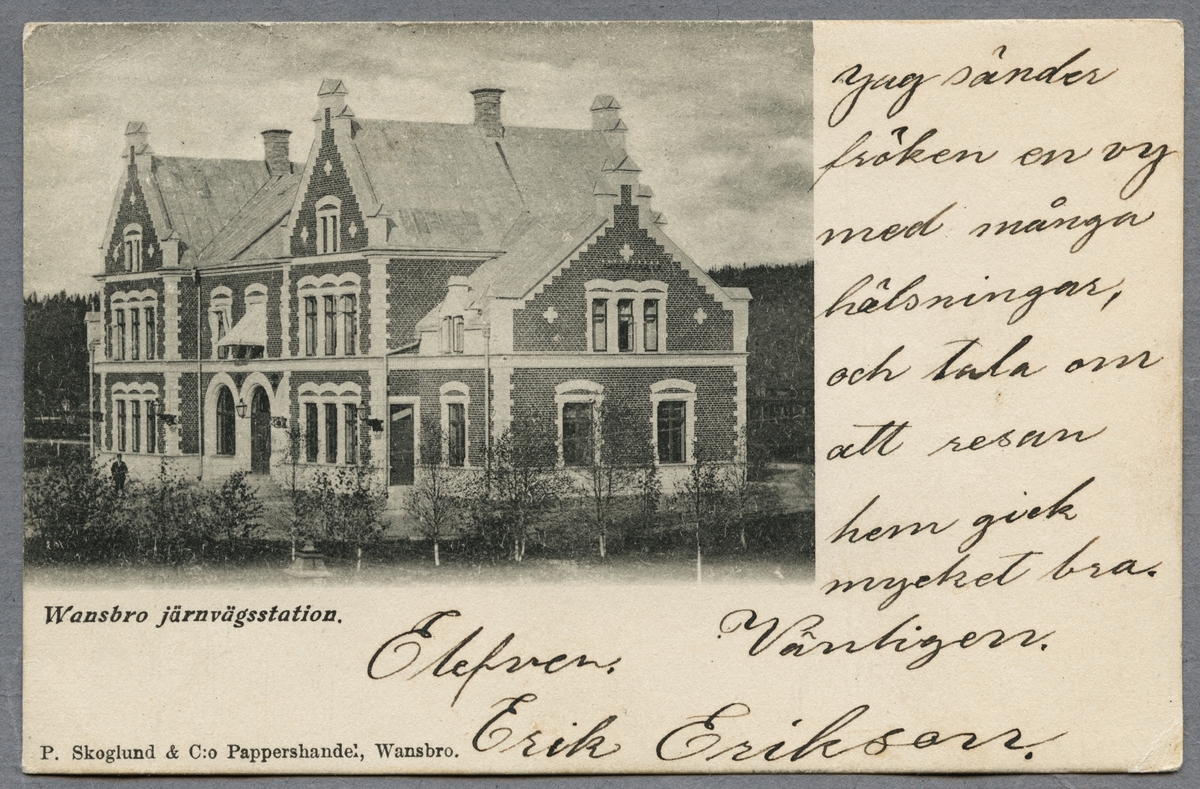 Jag sänder
fröken en vy
med många
hälsningar,
och tala om
att resan
hem gick
mycket bra.
Vänligen.
Elefven.
Erik Erikson.
Wansbro järnvägsstation.
P. Skoglund & C:o Pappershandel, Wansbro.